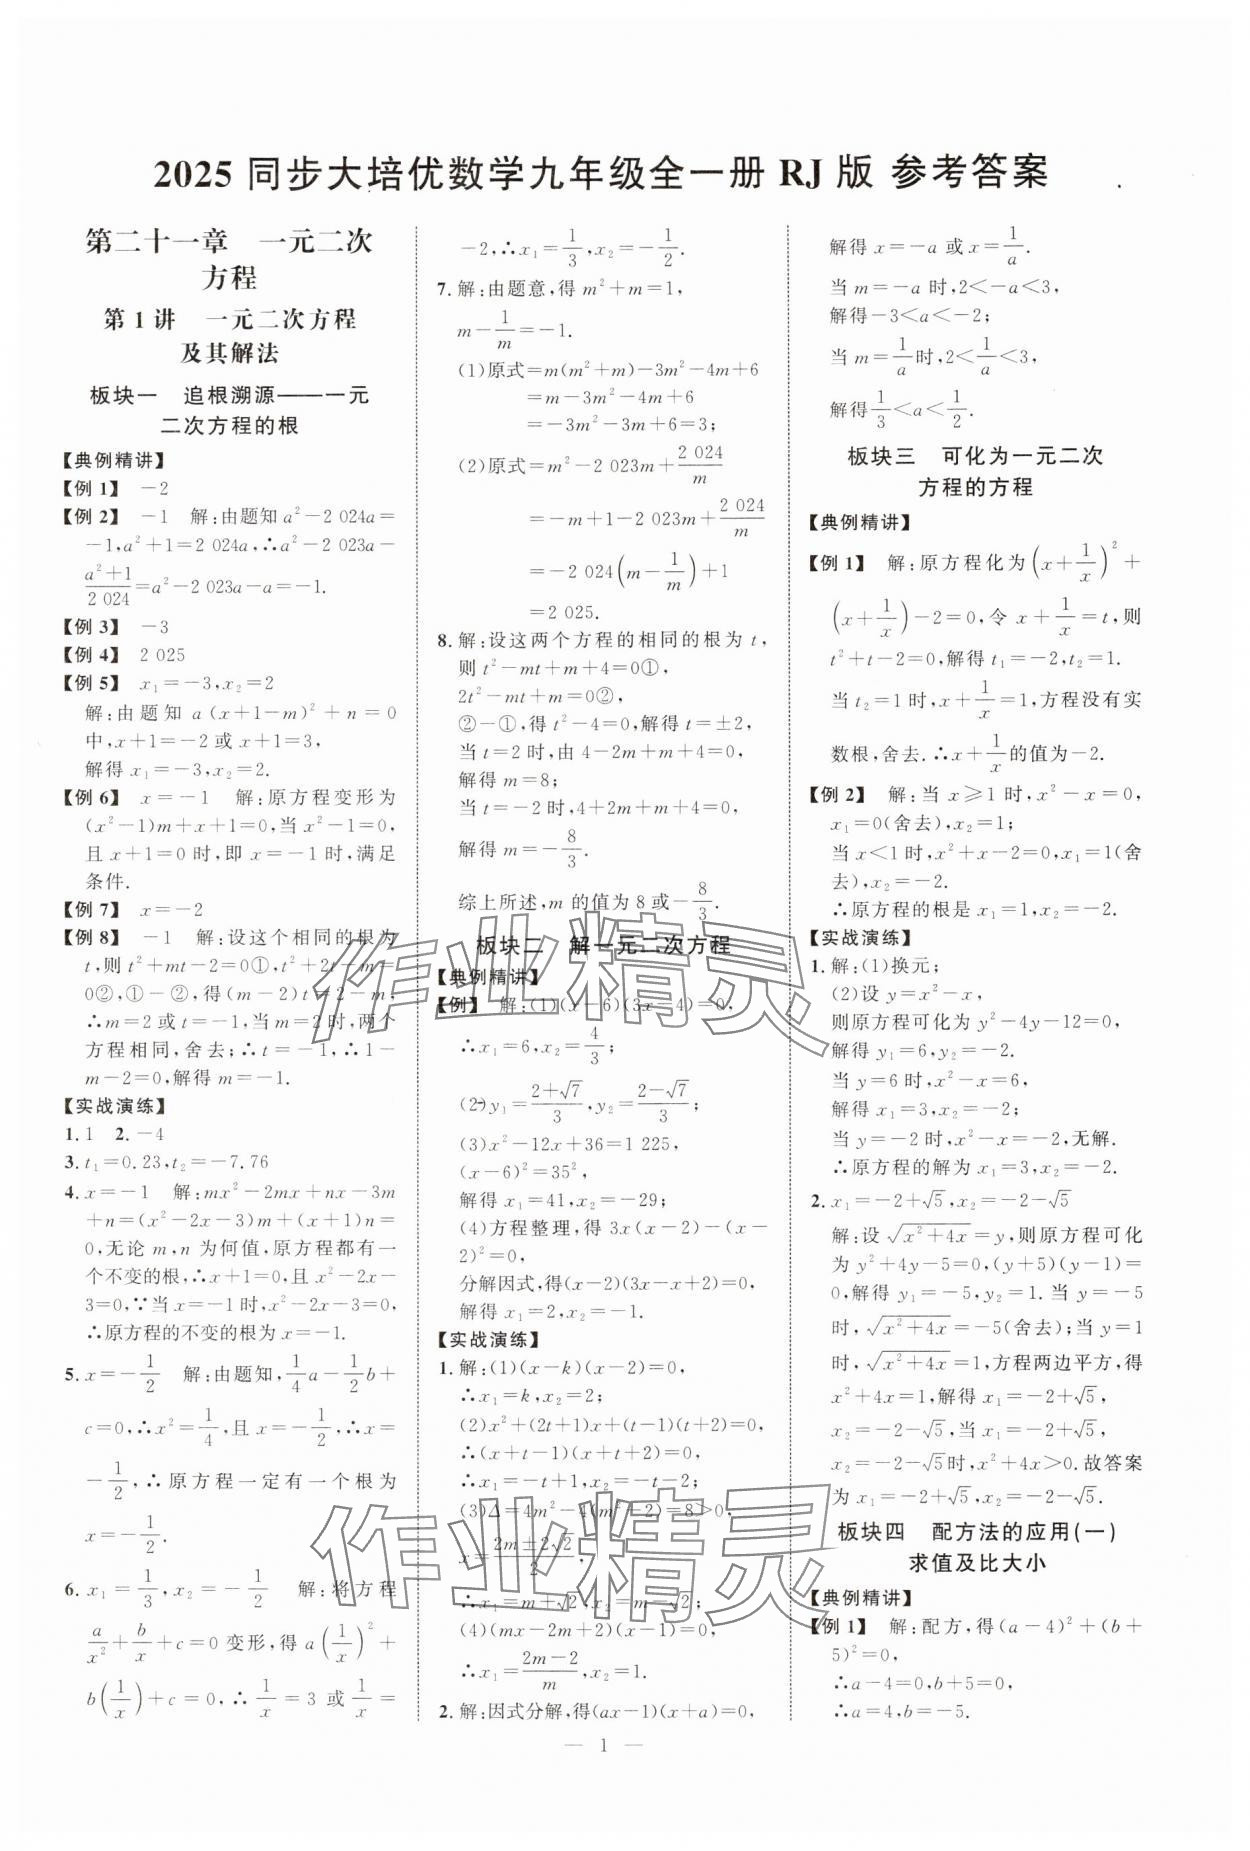 2025 同步大培优数学九年级全一册 RJ 版 参考答案
第二十一章 一元二次
方程
第 1 讲 一元二次方程
及其解法
板块一 追根溯源——一元
二次方程的根
【典例精讲】
【例 1】 －2
【例 2】 －1 解:由题知 a²－2 024a＝
－1,a²＋1＝2 024a,∴a²－2 023a－
(a²＋1)/(2 024)＝a²－2 023a－a＝－1.
【例 3】 －3
【例 4】 2 025
【例 5】 x₁＝－3,x₂＝2
解:由题知 a(x＋1－m)²＋n＝0
中,x＋1＝－2或 x＋1＝3,
解得 x₁＝－3,x₂＝2.
【例 6】 x＝－1 解:原方程变形为
(x²－1)m＋x＋1＝0,当 x²－1＝0,
且 x＋1＝0 时,即 x＝－1时,满足
条件.
【例 7】 x＝－2
【例 8】 －1 解:设这个相同的根为
t,则 t²＋mt－2＝0①,t²＋2t－m＝
0②,①－②,得(m－2)t＝2－m,
∴m＝2或 t＝－1,当 m＝2时,两个
方程相同,舍去;∴t＝－1,∴1－
m－2＝0,解得 m＝－1.
【实战演练】
1. 1 2. －4
3. t₁＝0.23,t₂＝－7.76
4. x＝－1 解:mx²－2mx＋nx－3m
＋n＝(x²－2x－3)m＋(x＋1)n＝
0,无论 m,n 为何值,原方程都有一
个不变的根,∴x＋1＝0,且 x²－2x－
3＝0,∵当 x＝－1时,x²－2x－3＝0,
∴原方程的不变的根为 x＝－1.
5. x＝－1/2 解:由题知,1/4a－1/2b＋
c＝0,∴x²＝1/4,且 x＝－1/2,∴x＝
－1/2,∴原方程一定有一个根为
x＝－1/2.
6. x₁＝1/3,x₂＝－1/2 解:将方程
a/x²＋b/x＋c＝0 变形,得 a(1/x)²＋
b(1/x)＋c＝0,∴1/x＝3 或 1/x＝
－2,∴x₁＝1/3,x₂＝－1/2.
7. 解:由题意,得 m²＋m＝1,
m－1/m＝－1.
(1)原式＝m(m²＋m)－3m²－4m＋6
＝m－3m²－4m＋6
＝－3m²－3m＋6＝3;
(2)原式＝m²－2 023m＋2 024/m
＝－m＋1－2 023m＋2 024/m
＝－2 024(m－1/m)＋1
＝2 025.
8. 解:设这两个方程的相同的根为 t,
则 t²－mt＋m＋4＝0①,
2t²－mt＋m＝0②,
②－①,得 t²－4＝0,解得 t＝±2,
当 t＝2 时,由 4－2m＋m＋4＝0,
解得 m＝8;
当 t＝－2 时,4＋2m＋m＋4＝0,
解得 m＝－8/3.
综上所述,m 的值为 8 或－8/3.
板块二 解一元二次方程
【典例精讲】
【例】 解:(1)(x－6)(3x－4)＝0,
∴x₁＝6,x₂＝4/3;
(2)y₁＝(2＋√7)/3,y₂＝(2－√7)/3;
(3)x²－12x＋36＝1 225,
(x－6)²＝35²,
解得 x₁＝41,x₂＝－29;
(4)方程整理,得 3x(x－2)－(x－
2)²＝0,
分解因式,得(x－2)(3x－x＋2)＝0,
解得 x₁＝2,x₂＝－1.
【实战演练】
1. 解:(1)(x－k)(x－2)＝0,
∴x₁＝k,x₂＝2;
(2)x²＋(2t＋1)x＋(t－1)(t＋2)＝0,
∴(x＋t－1)(x＋t＋2)＝0,
∴x₁＝－t＋1,x₂＝－t－2;
(3)Δ＝4m²－4(m²－2)＝8＞0,
x＝(2m±2√2)/2,
∴x₁＝m＋√2,x₂＝m－√2;
(4)(mx－2m＋2)(x－1)＝0,
∴x₁＝(2m－2)/m,x₂＝1.
2. 解:因式分解,得(ax－1)(x＋a)＝0,
解得 x＝－a 或 x＝1/a.
当 m＝－a 时,2＜－a＜3,
解得－3＜a＜－2;
当 m＝1/a时,2＜1/a＜3,
解得1/3＜a＜1/2.
板块三 可化为一元二次
方程的方程
【典例精讲】
【例 1】 解:原方程化为(x＋1/x)²＋
(x＋1/x)－2＝0,令 x＋1/x＝t,则
t²＋t－2＝0,解得 t₁＝－2,t₂＝1.
当 t₂＝1 时,x＋1/x＝1,方程没有实
数根,舍去.∴x＋1/x的值为－2.
【例 2】 解:当 x≥1 时,x²－x＝0,
x₁＝0(舍去),x₂＝1;
当 x＜1 时,x²＋x－2＝0,x₁＝1(舍
去),x₂＝－2.
∴原方程的根是 x₁＝1,x₂＝－2.
【实战演练】
1. 解:(1)换元;
(2)设 y＝x²－x,
则原方程可化为 y²－4y－12＝0,
解得 y₁＝6,y₂＝－2.
当 y＝6 时,x²－x＝6,
解得 x₁＝3,x₂＝－2;
当 y＝－2 时,x²－x＝－2,无解.
∴原方程的解为 x₁＝3,x₂＝－2.
2. x₁＝－2＋√5,x₂＝－2－√5
解:设 √(x²＋4x)＝y,则原方程可化
为 y²＋4y－5＝0,(y＋5)(y－1)＝
0,解得 y₁＝－5,y₂＝1. 当 y＝－5
时,√(x²＋4x)＝－5(舍去);当 y＝1
时,√(x²＋4x)＝1,方程两边平方,得
x²＋4x＝1,解得 x₁＝－2＋√5,
x₂＝－2－√5,当 x₁＝－2＋√5,
x₂＝－2－√5时,x²＋4x＞0.故答案
为 x₁＝－2＋√5,x₂＝－2－√5.
板块四 配方法的应用(一)
求值及比大小
【典例精讲】
【例 1】 解:配方,得(a－4)²＋(b＋
5)²＝0,
∴a－4＝0,b＋5＝0,
∴a＝4,b＝－5.
— 1 —
作业精灵
作业精灵